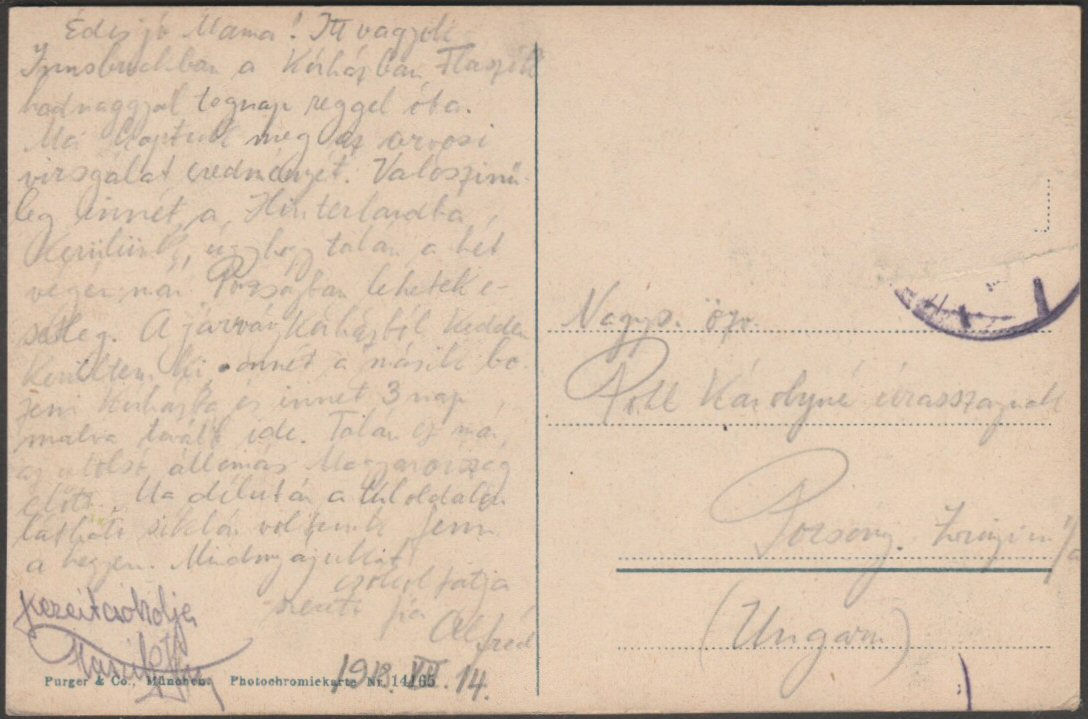 Édes jó Mama! Itt vagyok
Innsbruckban a Kórházban Flaszik
hadnaggyal tegnap reggel óta.
Ma kaptuk meg az orvosi
vizsgálat eredményét. Valószinü-
leg innét a Hinterlandba
kerülünk, úgyhogy talán a hét
végén már Pozsonyban lehetek e-
setleg. A járvány kórházból kedden
kerültem ki, onnet a másik bo-
zeni kórházba és innet 3 nap
mulva tovább ide. Talán ez már
az utolsó állomás Magyarország
előtt. Ma délután a túloldalon
látható siklón voltunk fenn
a hegyen. Mindnyájukat
csókolja
szerető fia
Alfréd
Kezeit csokolja
1918. VII. 14.
Purger & Co., München. Photochromiekarte Nr. 14165
Nagys. özv.
Pohl Károlyné úrasszonynak
Pozsony.
(Ungarn)